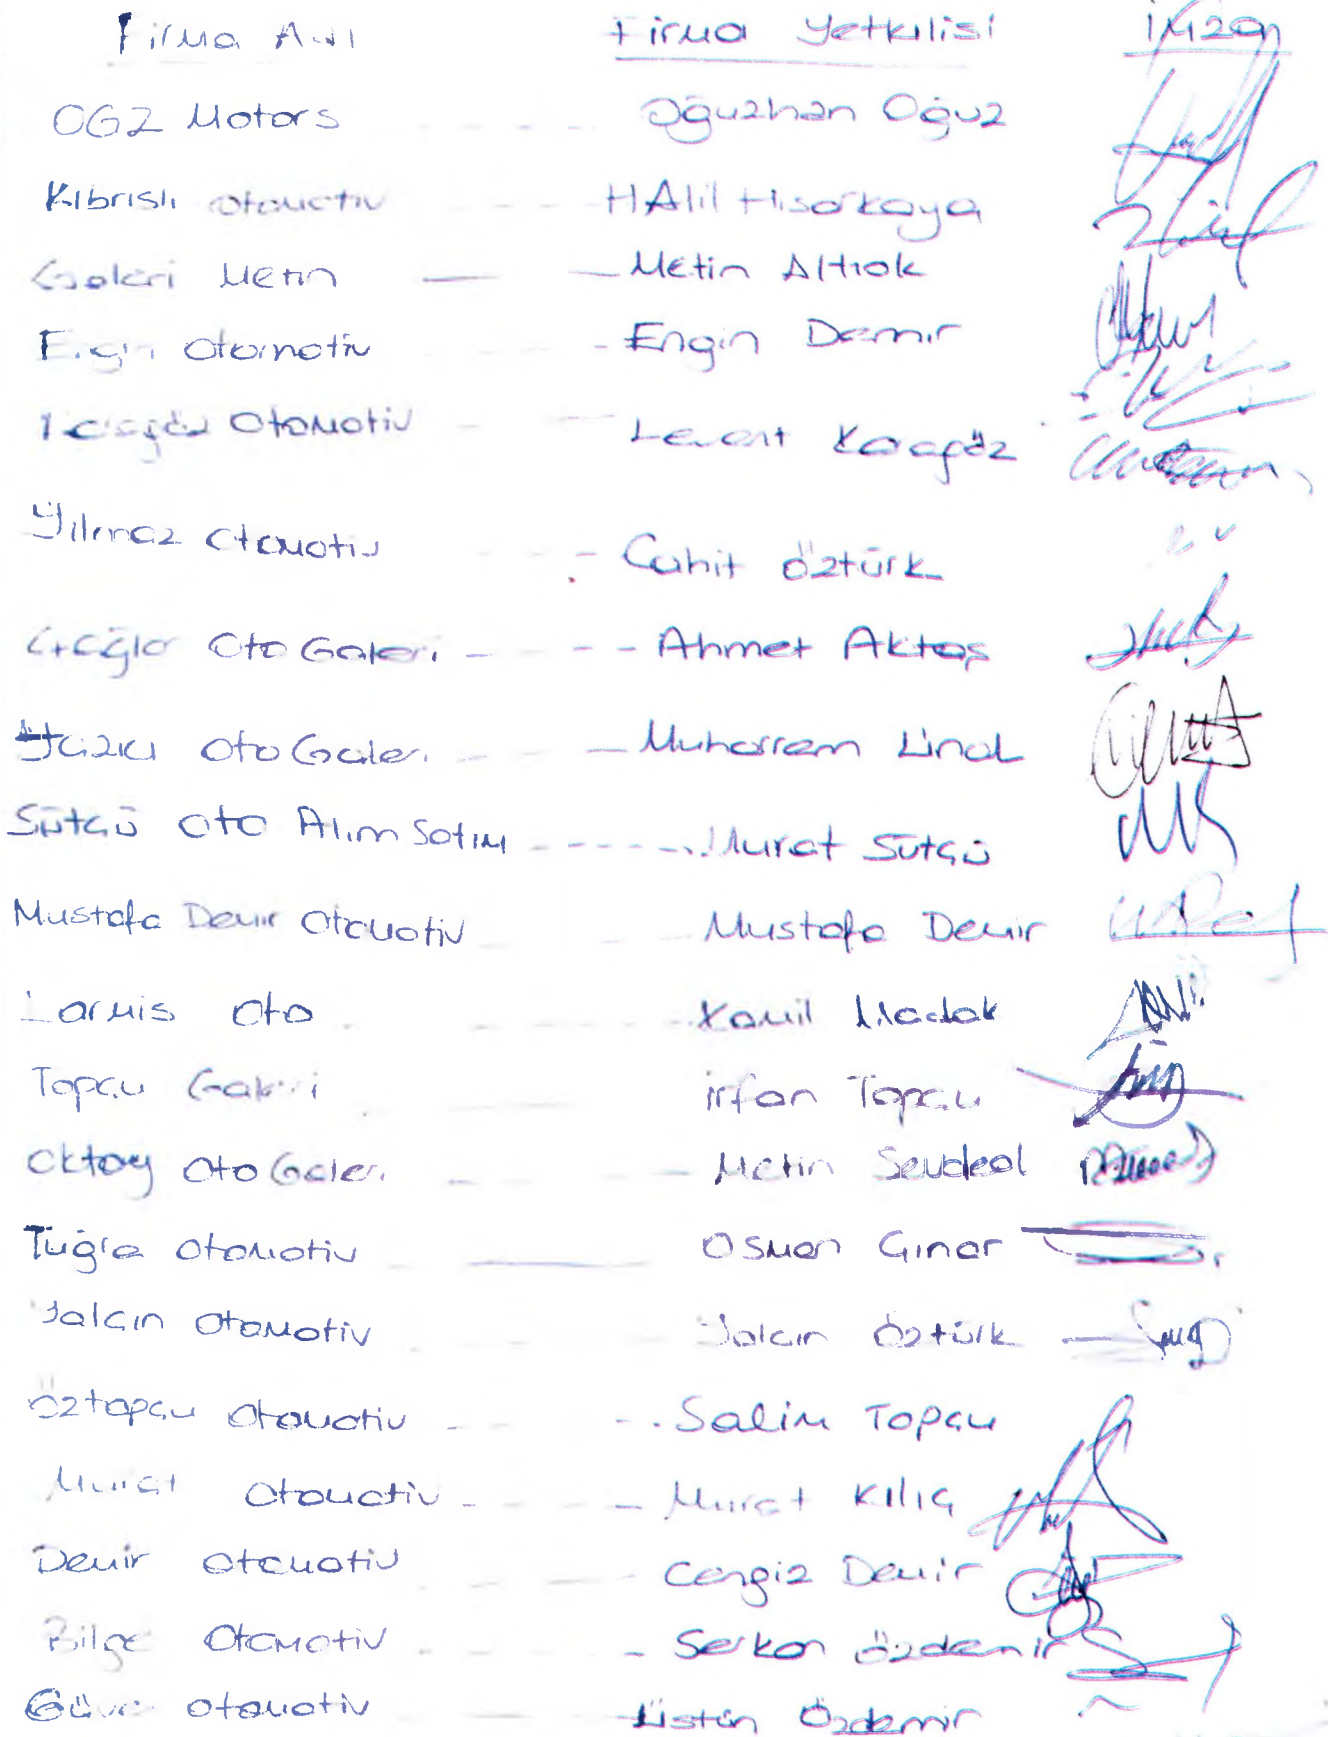 Firma Adı Firma Yetkilisi İmza
OGZ Motors Oğuzhan Oğuz
Kıbrıslı Otomotiv HAlil Hisarkaya
Galeri Metin Metin Altıok
Engin Otomotiv Engin Demir
Karagöz Otomotiv Levent Karagöz
Yılmaz Otomotiv Cahit Öztürk
Oto Galeri Ahmet Aktaş
Yazıcı Oto Galeri Muharrem Ünal
Sütçü Oto Alım Satım Murat Sütçü
Mustafa Demir Otomotiv Mustafa Demir
Larmis Oto Kamil Madak
Topçu Galeri İrfan Topçu
Oktay Oto Galeri Metin
Tuğra Otomotiv Osman Çınar
Yalçın Otomotiv Yalçın Öztürk
Öztopçu Otomotiv Salim Topçu
Murat Otomotiv Murat Kılıç
Demir Otomotiv Cengiz Demir
Bilge Otomotiv Serkan Özdemir
Güven Otomotiv Üstün Özdemir